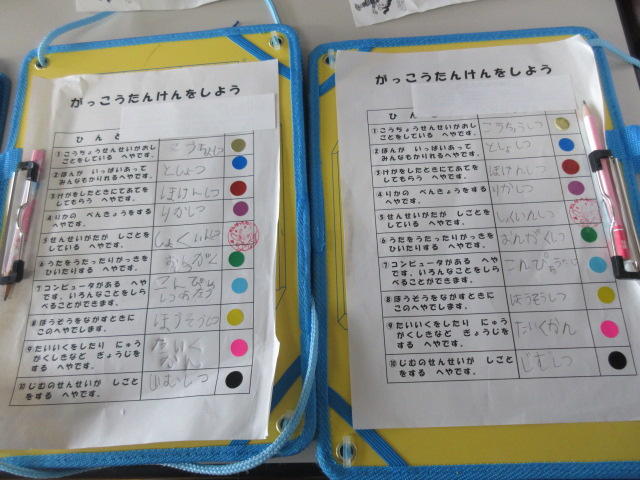 がっこうたんけんをしよう
ひん
①こうちょうせんせいがおし
ごとをしている へやです。
こうちょしつ
②ほんが いっぱいあって
みんなもかりれるへやです。
としょつ
③けがをしたときにてあてを
してもらう へやです。
ほけんしつ
④りかの べんきょうをする
へやです。
りかしつ
⑤せんせいがたが しごとを
している へやです。
しょくいんしつ
⑥うたをうたったりがっきを
ひいたりする へやです。
おんがく
⑦コンピュータがある へや
です。いろんなことをしら
べることができます。
⑧ほうそうをながすときに
このへやでします。
ほうそうしつ
⑨たいいくをしたり にゅう
がくしきなど ぎょうじを
する へやです。
⑩じむのせんせいが しごと
をする へやです。
じむしつ
がっこうたんけんをしよう
ひん
①こうちょうせんせいがおし
ごとをしている へやです。
こうちょうしつ
②ほんが いっぱいあって
みんなもかりれるへやです。
としょしつ
③けがをしたときにてあてを
してもらう へやです。
ほけんしつ
④りかの べんきょうをする
へやです。
りかしつ
⑤せんせいがたが しごとを
している へやです。
しくいんしつ
⑥うたをうたったりがっきを
ひいたりする へやです。
おんがくしつ
⑦コンピュータがある へや
です。いろんなことをしら
べることができます。
⑧ほうそうをながすときに
このへやでします。
ほうそうしつ
⑨たいいくをしたり にゅう
がくしきなど ぎょうじを
する へやです。
たいくかん
⑩じむのせんせいが しごと
をする へやです。
じむしつ